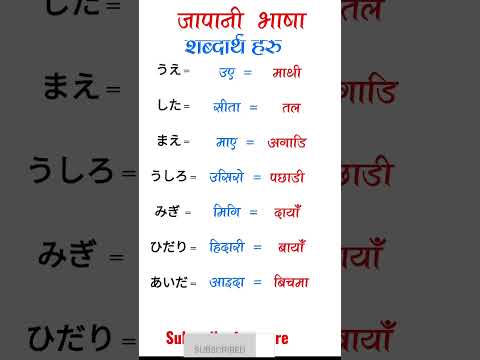 जापानी भाषा
शब्दार्थ हरु
うえ = उए = माथी
した = सीता = तल
まえ = माए = अगाडि
うしろ = उसिरो = पछाडी
みぎ = मिगि = दायाँ
ひだり = हिदारी = बायाँ
あいだ = आइदा = बिचमा
SUBSCRIBED
まえ =
うしろ =
みぎ =
ひだり =